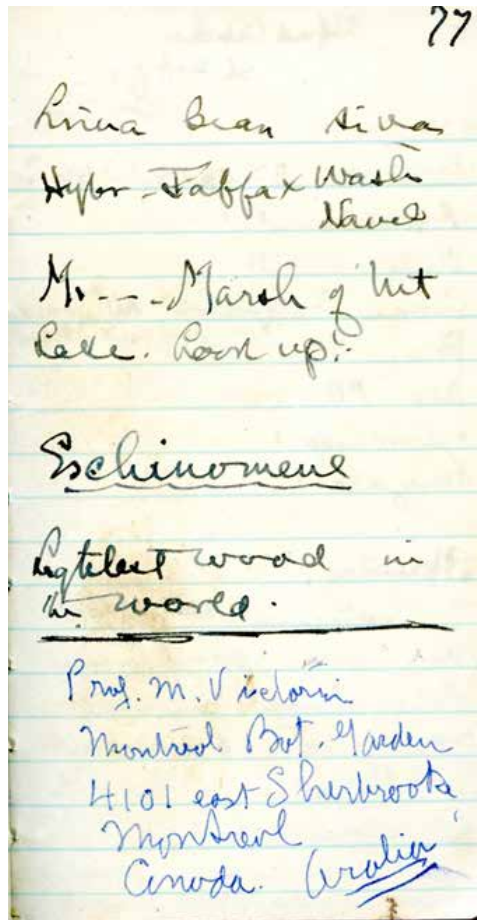 77
Lima bean
Hybr - Fabfax Wash
Navel
Mr --- Marsh of
Lake. Look up!
Eschinomene
Lightest wood in
the world.
Prof. M. Victorin
Montreal Bot. Garden
4101 east Sherbrooke
Montreal
Canada. Aralia